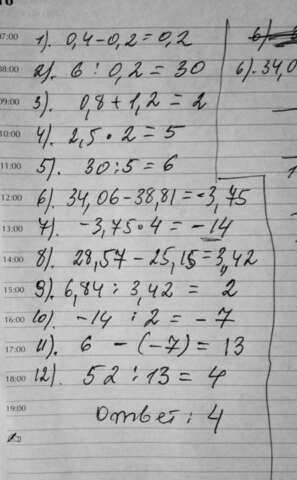 07:00 1). 0,4-0,2=0,2
08:00 2). 6 : 0,2 = 30 6). 34,0
09:00 3). 0,8+1,2=2
10:00 4). 2,5 • 2 = 5
11:00 5). 30:5=6
12:00 6). 34,06-38,81=-3,75
13:00 7). -3,75•4 = -14
14:00 8). 28,57-25,15=3,42
15:00 9). 6,84 : 3,42 = 2
16:00 10). -14 : 2 = -7
17:00 11). 6 - (-7) = 13
18:00 12). 52 : 13 = 4
19:00 Ответ: 4